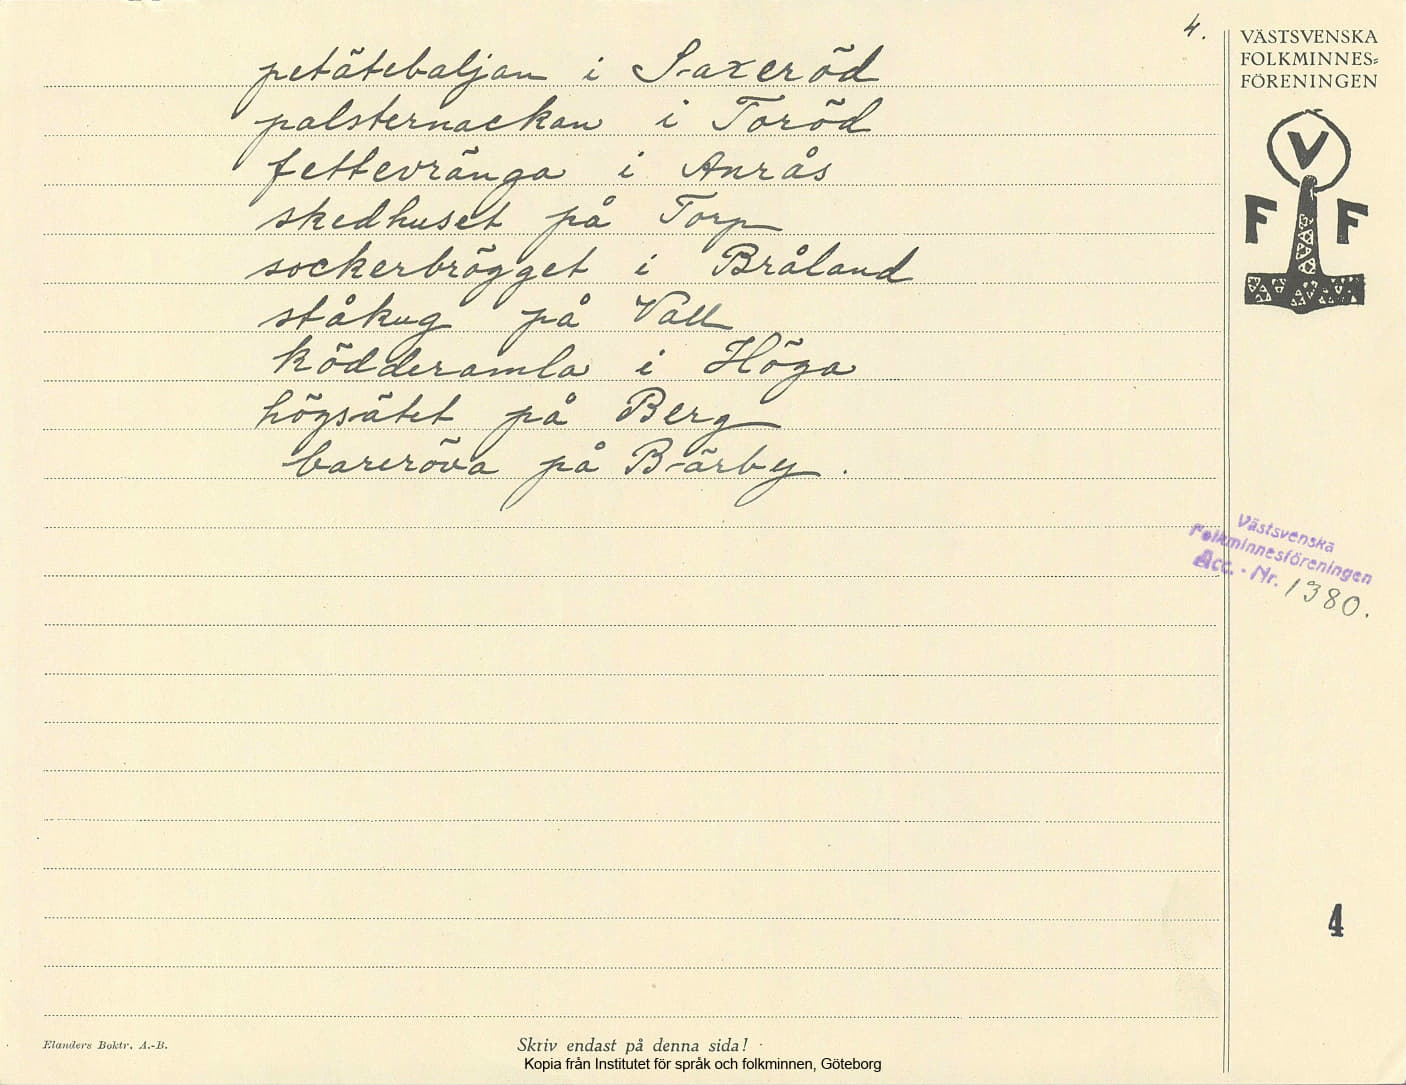 4.
petätebaljan i Saxeröd
palsternackan i Toröd
fettevränga i Anrås
skedhuset på Torp
sockerbrögget i Bråland
ståkug på Vall
ködderamla i Höga
högsätet på Berg
bareröva på Bärby.
VÄSTSVENSKA
FOLKMINNES-
FÖRENINGEN
V
F F
Västsvenska
Folkminnesföreningen
Acc. - Nr. 1380.
4
Elanders Boktr. A.-B.
Skriv endast på denna sida!
Kopia från Institutet för språk och folkminnen, Göteborg